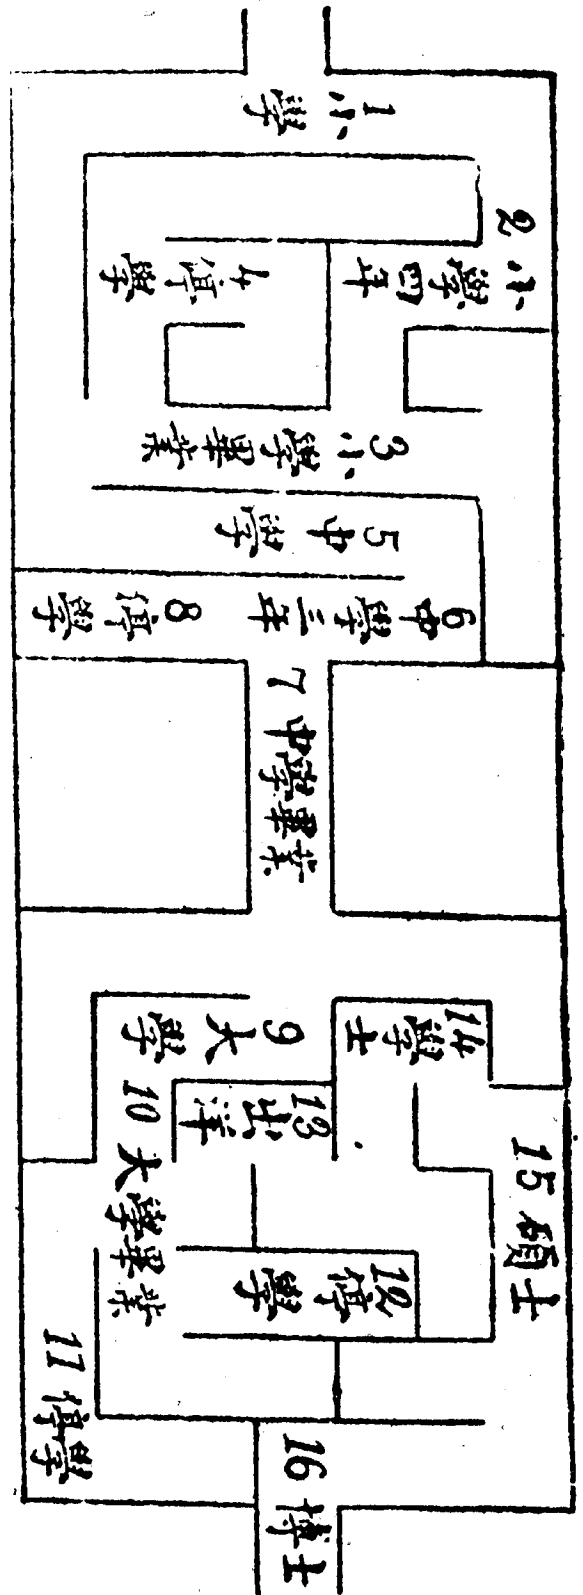 1 小學
2 小學四年
3 小學畢業
4 停學
5 中學
6 中學三年
7 中學畢業
8 停學
9 大學
10 大學畢業
11 停學
12 停學
13 出洋
14 學士
15 碩士
16 博士